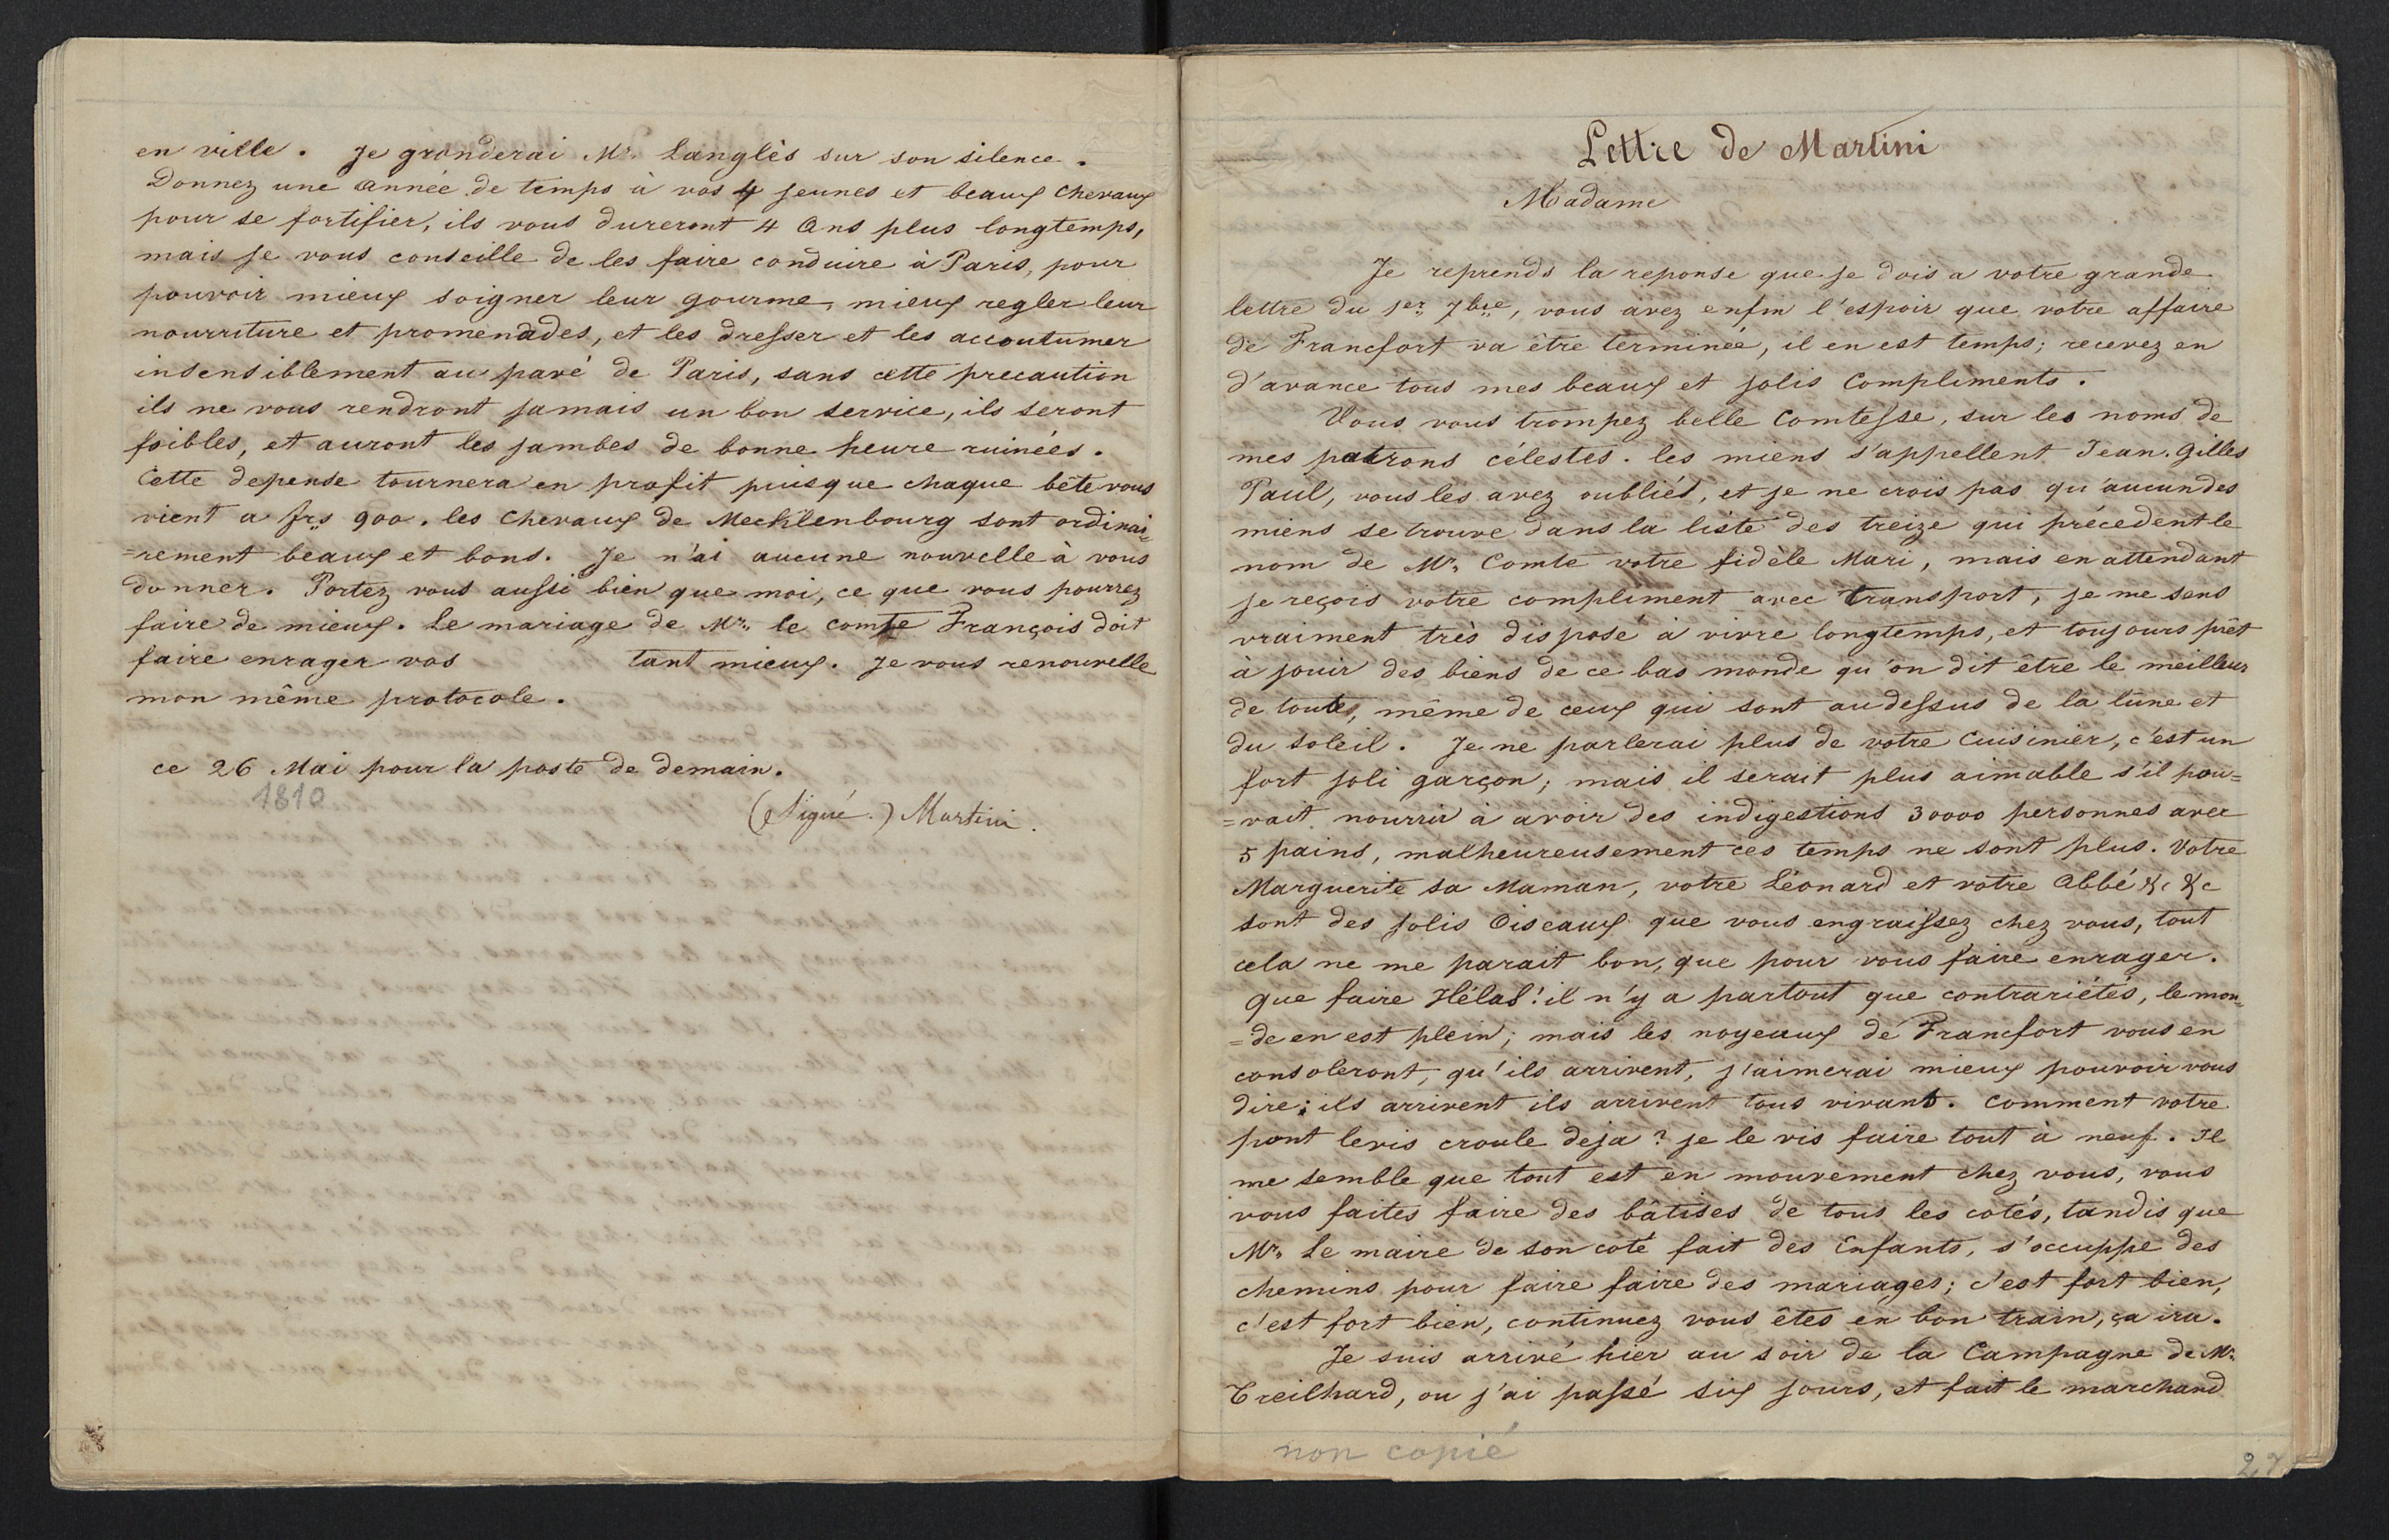 en ville. Je gronderai Mr. Langlès sur son silence.
Donnez une année de temps à vos 4 jeunes et beaux chevaux
pour se fortifier, ils vous dureront 4 Ans plus longtemps,
mais je vous conseille de les faire conduire à Paris, pour
pouvoir mieux soigner leur gourme, mieux regler leur
nourriture et promenades, et les dresser et les accoutumer
insensiblement au pavé de Paris, sans cette precaution
ils ne vous rendront jamais un bon service, ils seront
foibles, et auront les jambes de bonne heure ruinées.
Cette depense tournera en profit puisque chaque bête vous
vient a frs 900. les chevaux de Mecklenbourg sont ordinai=
=rement beaux et bons. Je n'ai aucune nouvelle à vous
donner. Portez vous aussi bien que moi, ce que vous pourrez
faire de mieux. Le mariage de Mr. le comte François doit
faire enrager vos tant mieux. Je vous renouvelle
mon même protocole.
ce 26 Mai pour la poste de demain.
1810
(Signé.) Martini.
Lettre de Martini
Madame
Je reprends la reponse que je dois a votre grande
lettre du 1er 7bre, vous avez enfin l'espoir que votre affaire
de Francfort va être terminée, il en est temps; recevez en
d'avance tous mes beaux et jolis Compliments.
Vous vous trompez belle Comtesse, sur les noms de
mes patrons célestes. les miens s'appellent Jean. Gilles
Paul, vous les avez oubliés, et je ne crois pas qu'aucun des
miens se trouve dans la liste des treize qui précedent le
nom de Mr. Comte votre fidèle Mari, mais en attendant
je reçois votre compliment avec transport, je me sens
vraiment très disposé à vivre longtemps, et toujours prêt
à jouir des biens de ce bas monde qu'on dit être le meilleur
de toutes, même de ceux qui sont au dessus de la lune et
du soleil. Je ne parlerai plus de votre Cuisinier, c'est un
fort joli garçon; mais il serait plus aimable s'il pou=
=vait nourrir à avoir des indigestions 30000 personnes avec
5 pains, malheureusement ces temps ne sont plus. Votre
Marguerite sa Maman, votre Léonard et votre Abbé &c &c
sont des jolis Oiseaux que vous engraissez chez vous, tout
cela ne me parait bon, que pour vous faire enrager.
que faire Hélas! il n'y a partout que contrariétés, le mon=
=de en est plein; mais les noyeaux de Francfort vous en
consoleront, qu'ils arrivent, j'aimerai mieux pouvoir vous
dire: ils arrivent ils arrivent tous vivants. Comment votre
pont levis croule deja? je le vis faire tout à neuf. Il
me semble que tout est en mouvement chez vous, vous
vous faites faire des bâtises de tous les cotés, tandis que
Mr. Le maire de son coté fait des Enfants, s'occuppe des
chemins pour faire faire des mariages; c'est fort bien,
c'est fort bien, continuez vous êtes en bon train, ça ira.
Je suis arrivé hier au soir de la Campagne de Mr.
Treilhard, ou j'ai passé six jours, et fait le marchand
non copié
27